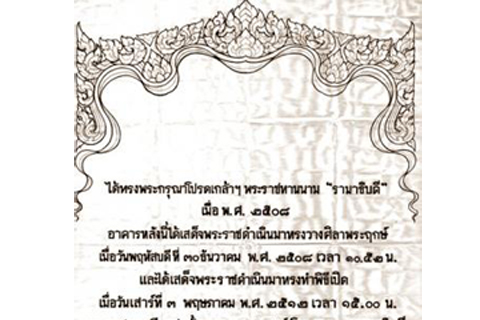 ได้ทรงพระกรุณาโปรดเกล้าฯ พระราชทานนาม "รามาธิบดี"
เมื่อ พ.ศ. ๒๕๐๘
อาคารหลังนี้ได้เสด็จพระราชดำเนินมาทรงวางศิลาพระฤกษ์
เมื่อวันพฤหัสบดีที่ ๓๐ธันวาคม พ.ศ. ๒๕๐๘ เวลา ๑๐.๕๒ น.
และได้เสด็จพระราชดำเนินมาทรงทำพิธีเปิด
เมื่อวันเสาร์ที่ ๓ พฤษภาคม พ.ศ. ๒๕๑๒ เวลา ๑๕.๐๐ น.